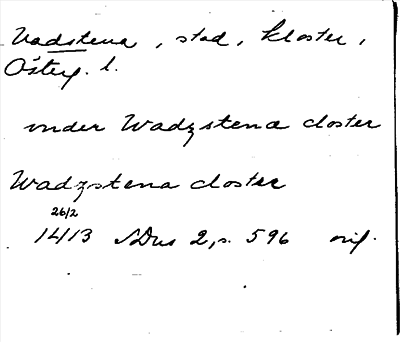 Vadstena, stad, kloster,
Österg. l.
vnder Wadzstena closter
Wadzstena closter
26/2
1413 SDns 2, s. 596 orig.